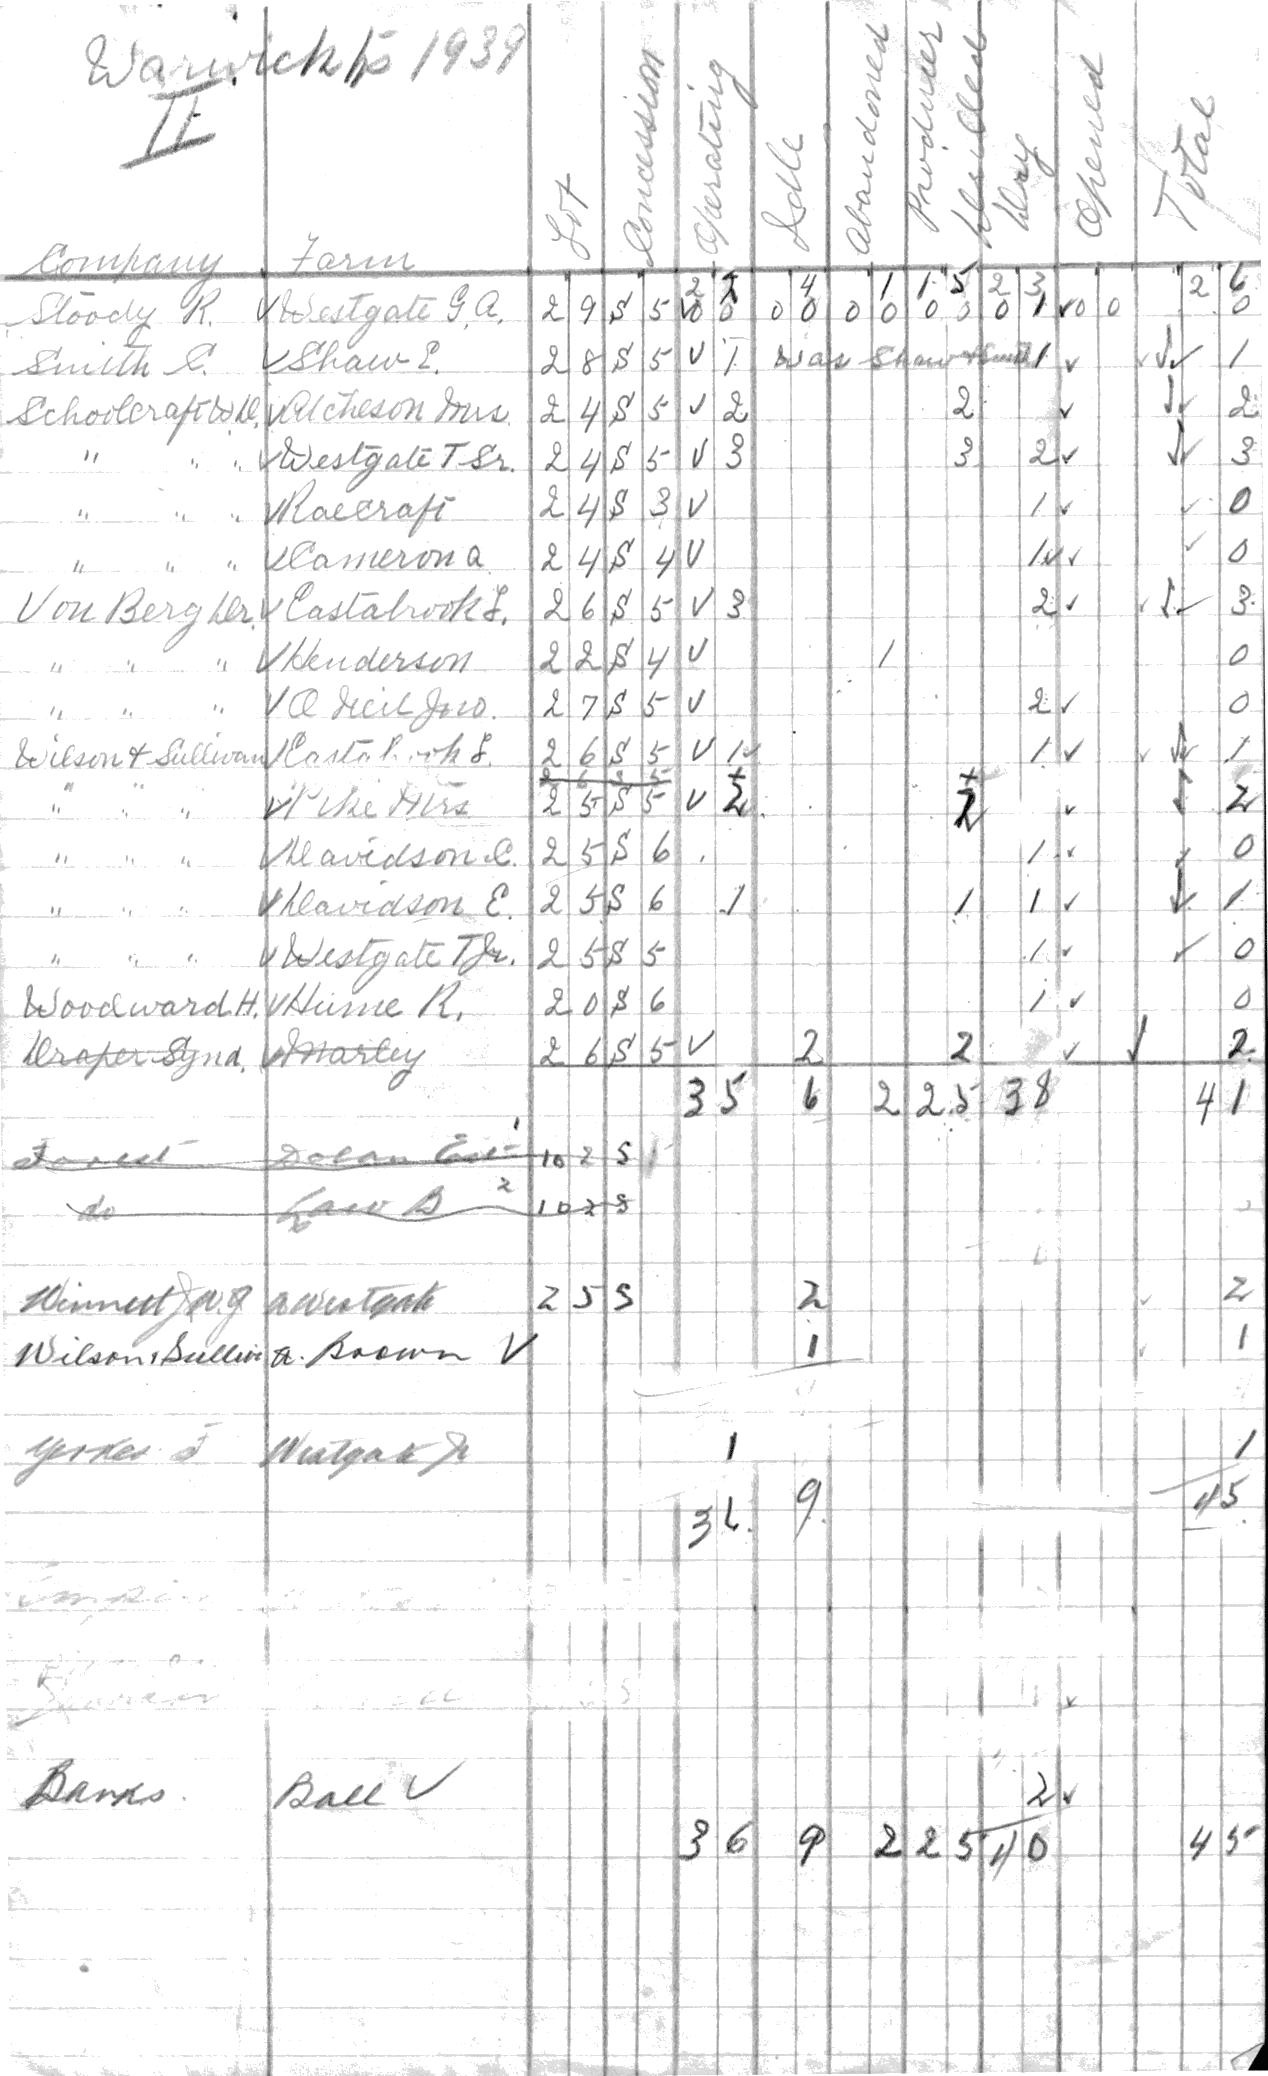 Warwick tp 1939
II
Company Farm Lot Concession Operating Idle Abandoned Producer Dry Opened Total
2 2 4 1 1 5 2 3 2 6
Stoody R. √ Westgate G.A. 2 9 S 5 √ 0 0 0 0 0 0 0 0 0 1 √ 0 0 0
Smith C. √ Shaw E. 2 8 S 5 √ 1 Was Shaw + Smith 1 √ √ √ √ 1
Schoolcraft W.D. √ Atcheson Mrs. 2 4 S 5 √ 2 2 √ √ √ 2
" " " √ Westgate T Sr. 2 4 S 5 √ 3 3 2 √ √ √ 3
" " " √ Raecraft 2 4 S 3 √ 1 √ √ 0
" " " √ Cameron A 2 4 S 4 √ 1 √ √ √ 0
Von Berg Dr. √ Eastabrook L. 2 6 S 5 √ 3 2 √ √ √ √ 3
" " " √ Henderson 2 2 S 4 √ 1 0
" " " √ O Neil Jno. 2 7 S 5 √ 2 √ 0
Wilson & Sullivan √ Eastabrook L. 2 6 S 5 √ 1 √ 1 √ √ √ √ 1
2 6 S 5 + +
" " " √ Pike Mrs 2 5 S 5 √ 2 2 √ √ 2
" " " √ Davidson C. 2 5 S 6 1 √ √ 0
" " " √ Davidson E. 2 5 S 6 1 1 1 √ √ 1
" " " √ Westgate T Jr. 2 5 S 5 1 √ √ 0
Woodward H. √ Hume R. 2 0 S 6 1 √ 0
Draper Synd. √ Marley 2 6 S 5 √ 2 2 √ √ 2
3 5 6 2 2 5 3 8 4 1
Forest Dolan East 1 10 2 S
do Law B 2 10 2 S
Winnett J W G A Westgate 2 5 S 2 √ 2
Wilson & Sullivan A. Brown √ 1 √ 1
Yerkes Westgate Jr 1 1
3 6 9 45
√
Banks Ball √ 2 √
3 6 9 2 2 5 4 0 4 5